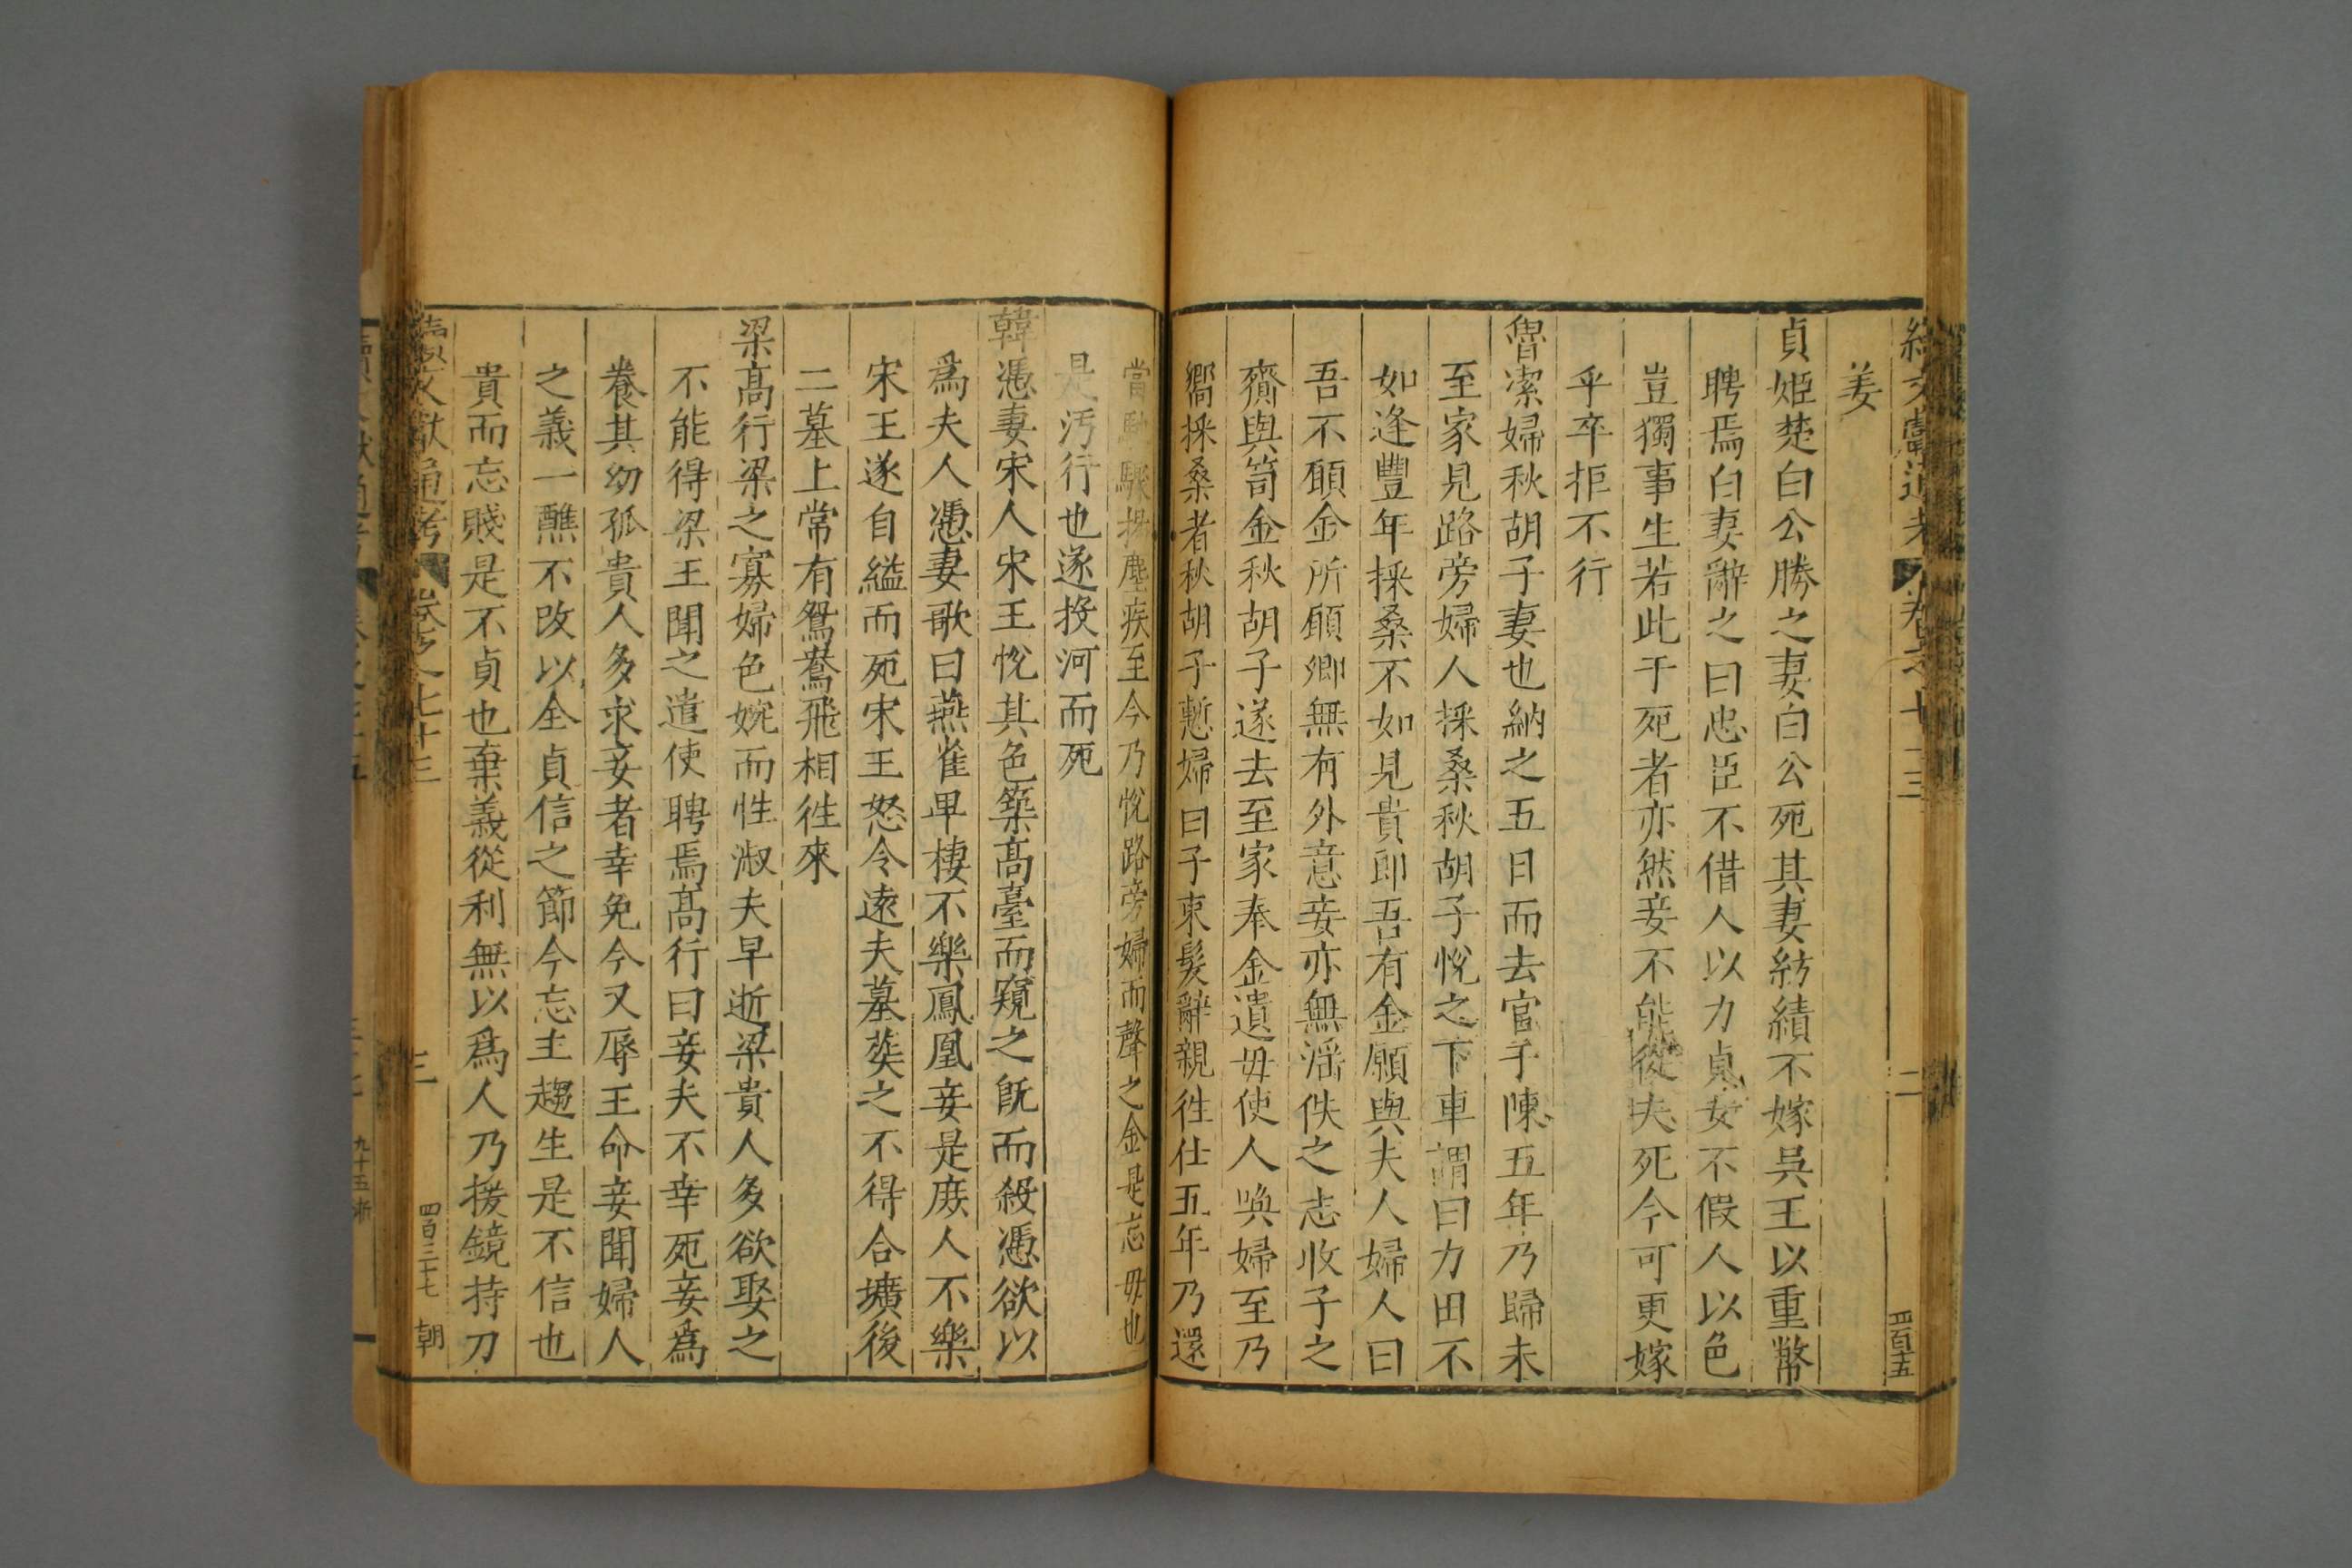 姜
貞姬楚白公勝之妻白公死其妻紡績不嫁吳王以重幣
聘焉白妻辭之曰忠臣不借人以力貞女不假人以色
豈獨事生若此于死者亦然妾不能從夫死今可更嫁
乎卒拒不行
魯潔婦秋胡子妻也納之五日而去官于陳五年乃歸未
至家見路旁婦人採桑秋胡子悅之下車謂曰力田不
如逢豐年採桑不如見貴郎吾有金願與夫人婦人曰
吾不願金所願卿無有外意妾亦無淫佚之志收子之
齎與笥金秋胡子遂去至家奉金遺毋使人喚婦至乃
嚮採桑者秋胡子慙婦曰子束髮辭親徃仕五年乃還
當馳驟揚塵疾至今乃悅路旁婦而聲之金是忘毋也
是汚行也遂投河而死
韓憑妻宋人宋王悅其色築髙臺而窺之旣而殺憑欲以
爲夫人憑妻歌曰燕雀甲棲不樂鳳凰妾是庶人不樂
宋王遂自縊而死宋王怒令遠夫墓葬之不得合壙後
二墓上常有鴛鴦飛相徃來
梁髙行梁之寡婦色婉而性淑夫早逝梁貴人多欲娶之
不能得梁王聞之遣使聘焉髙行曰妾夫不幸死妾爲
養其幼孤貴人多求妾者幸免今又辱王命妾聞婦人
之義一醮不改以全貞信之節今忘主趨生是不信也
貴而忘賤是不貞也棄義從利無以爲人乃援鏡持刀
文獻通考 卷之七十三 三 四百三十七 朝